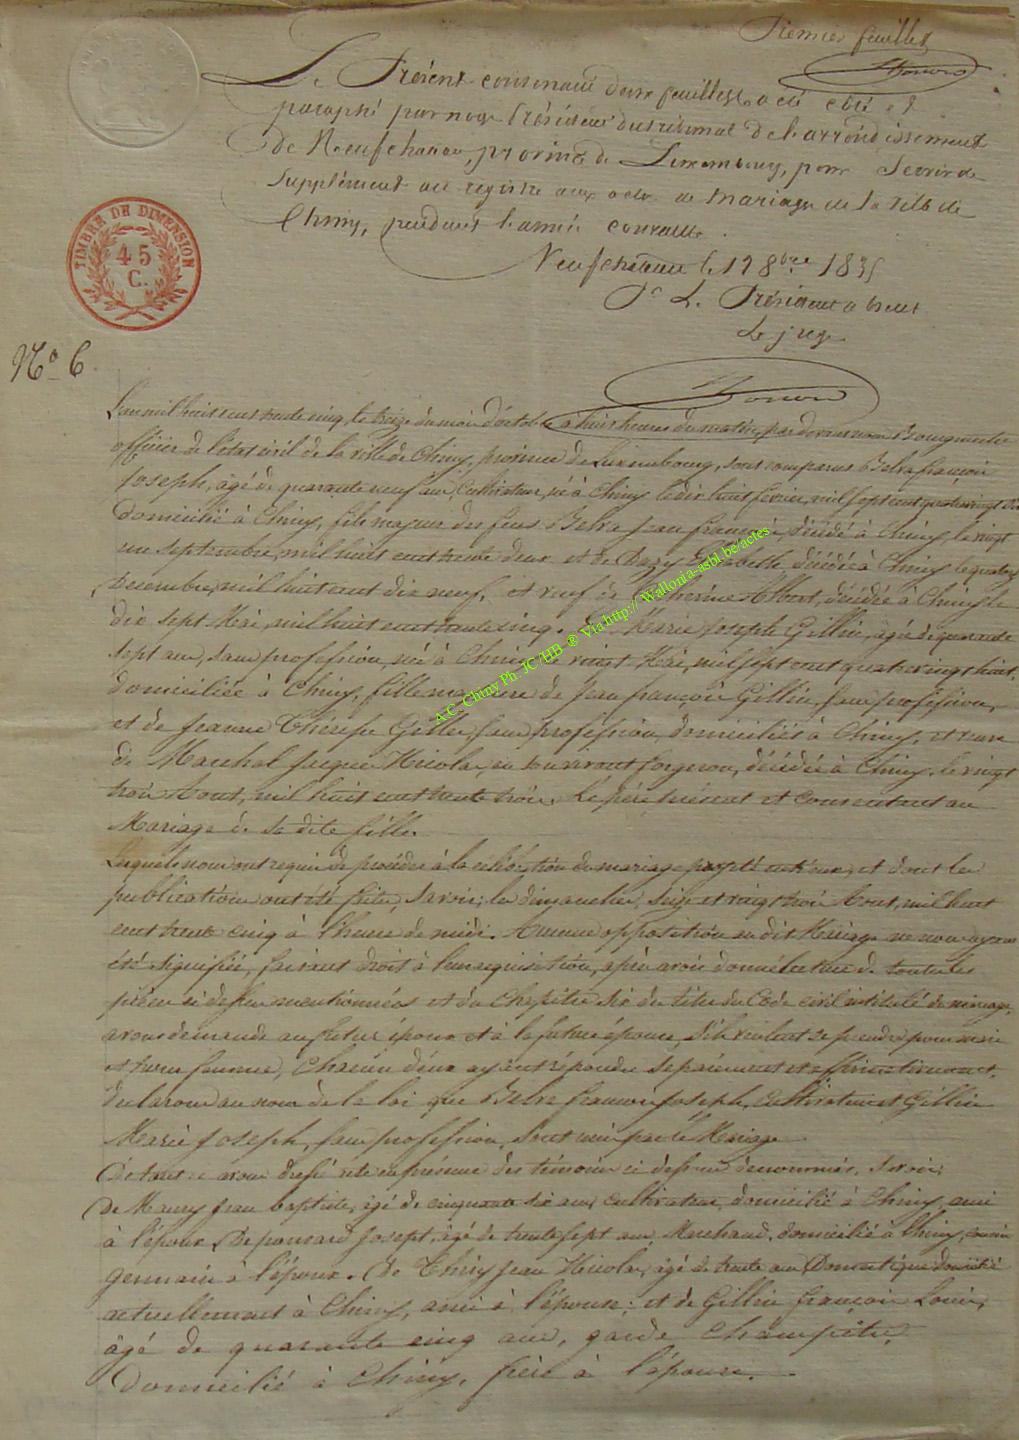 Premier feuillet
Le Présent contenant deux feuillets a été coté et
paraphé par nous Président du tribunal de l'arrondissement
de Neufchateau, province de Luxembourg, pour Servir de
Supplément au registre aux actes de Mariage de la Ville de
Chiny, pendant l'année courante.
Neufchateau le 12 8bre 1835
Pr. L. Président absent
Le juge
TIMBRE DE DIMENSION
45
C.
No. 6
L'an mil huit cent trente cinq, le treize du mois d'octobre à huit heures du matin, par devant nous Bourgmestre
officier de l'état civil de la ville de Chiny, province de Luxembourg, sont comparus François
Joseph, âgé de quarante neuf ans, Cultivateur, né à Chiny le dix huit février, mil sept cent quatre vingt six
domicilié à Chiny, fils majeur des feus Jean François, décédé à Chiny, le vingt
un septembre, mil huit cent trente deux et de Elisabeth décédée à Chiny le quatorze
Decembre, mil huit cent dix neuf, et veuf de Catherine Albert, décédée à Chiny le
dix sept Mai, mil huit cent trente cinq. Et Marie Joseph Gillin, âgée de quarante
sept ans, sans profession, née à Chiny le vingt Mai, mil sept cent quatre vingt huit,
domiciliée à Chiny, fille majeure de Jean François Gillin, sans profession,
et de Jeanne Thérèse Gillet, sans profession, domiciliés à Chiny, et veuve
de Marchal Jacques Nicolas, en son vivant forgeron, décédé à Chiny, le vingt
trois Aout, mil huit cent trente trois. Le père présent et consentant au
Mariage de sa dite fille.
Lesquels nous ont requis de procéder à la célébration du mariage projeté entr'eux, et dont les
publications ont été faites, Savoir; les dimanches, Seize et vingt trois Aout, mil huit
cent trente cinq à l'heure de midi. Aucune opposition au dit Mariage ne nous ayant
été signifiée, faisant droit à leur requisition, après avoir donné lecture de toutes les
pièces ci dessus mentionnées et du Chapitre Six du titre du Code civil intitulé du mariage,
avons demandé au futur époux et à la future épouse, s'ils veulent se prendre pour mari
et pour femme, Chacun d'eux ayant répondu séparément et affirmativement,
déclarons au nom de la loi que François Joseph, Cultivateur et Gillin
Marie Joseph, sans profession, sont unis par le Mariage
De tout ce avons dressé acte en présence des témoins ci dessous dénommés, Savoir;
De Maury Jean baptiste, âgé de cinquante six ans, Cultivateur, domicilié à Chiny, ami
à l'époux, Deponsard Joseph, âgé de trente sept ans, Marchand, domicilié à Chiny, cousin
germain à l'époux. De Thiry Jean Nicolas, âgé de trente ans Domestique domicilié
actuellement à Chiny, ami à l'épouse; et de Gillin François Louis,
âgé de quarante cinq ans, garde Champêtre,
domicilié à Chiny, frère à l'épouse.
A.C. Chiny Ph. JC /HB ® Via http:// Wallonia-asbl.be/actes